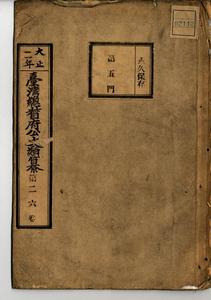 大正
二年
臺灣總督府公文類纂 第二六卷
永久保存
第五門